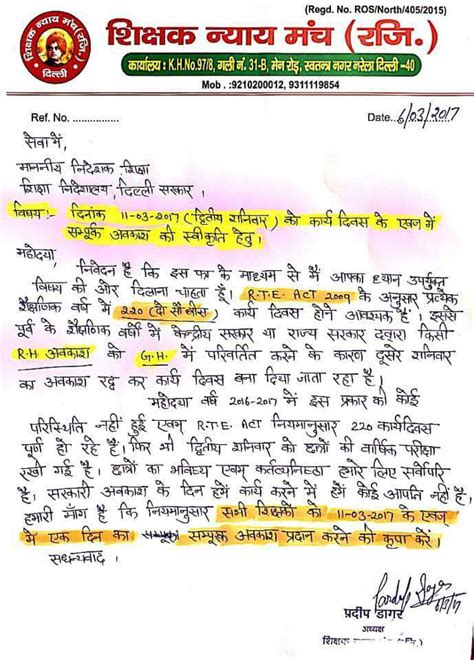 (Regd. No. ROS/North/405/2015)
शिक्षक न्याय मंच (रजि.)
दिल्ली
शिक्षक न्याय मंच (रजि.)
कार्यालय : K.H.No.97/8, गली नं. 31-B, मेन रोड़, स्वतन्त्र नगर नरेला दिल्ली -40
Mob. :9210200012, 9311119854
Ref. No. ................
Date..6/03/2017
सेवा में,
माननीय निदेशक शिक्षा
शिक्षा निदेशालय, दिल्ली सरकार ।
विषय:- दिनांक 11-03-2017 (द्वितीय शनिवार) को कार्य दिवस के एवज में
सम्पूरक अवकाश की स्वीकृति हेतु।
महोदया,
निवेदन है कि इस पत्र के माध्यम से मैं आपका ध्यान उपर्युक्त
विषय की ओर दिलाना चाहता हूँ। R.T.E. ACT 2009 के अनुसार प्रत्येक
शैक्षणिक वर्ष में 220 (दो सौ बीस) कार्य दिवस होने आवश्यक है। इससे
पूर्व के शैक्षणिक वर्षों में केन्द्रीय सरकार या राज्य सरकार द्वारा किसी
R.H. अवकाश को G.H. में परिवर्तित करने के कारण दूसरे शनिवार
का अवकाश रद्द कर कार्य दिवस बना दिया जाता रहा है।
महोदया वर्ष 2016-2017 में इस प्रकार की कोई
परिस्थिति नहीं हुई एवम् R.T.E. ACT नियमानुसार 220 कार्यदिवस
पूर्ण हो रहे हैं। फिर भी द्वितीय शनिवार को छात्रों की वार्षिक परीक्षा
रखी गई है। छात्रों का भविष्य एवम् कर्तव्यनिष्ठा हमारे लिए सर्वोपरि
है। सरकारी अवकाश के दिन हमें कार्य करने में हमें कोई आपत्ति नहीं है।
हमारी माँग है कि नियमानुसार सभी शिक्षकों को 11-03-2017 के एवज
में एक दिन का सम्पूरक अवकाश प्रदान करने की कृपा करें।
सधन्यवाद।
प्रदीप डागर
अध्यक्ष
शिक्षक